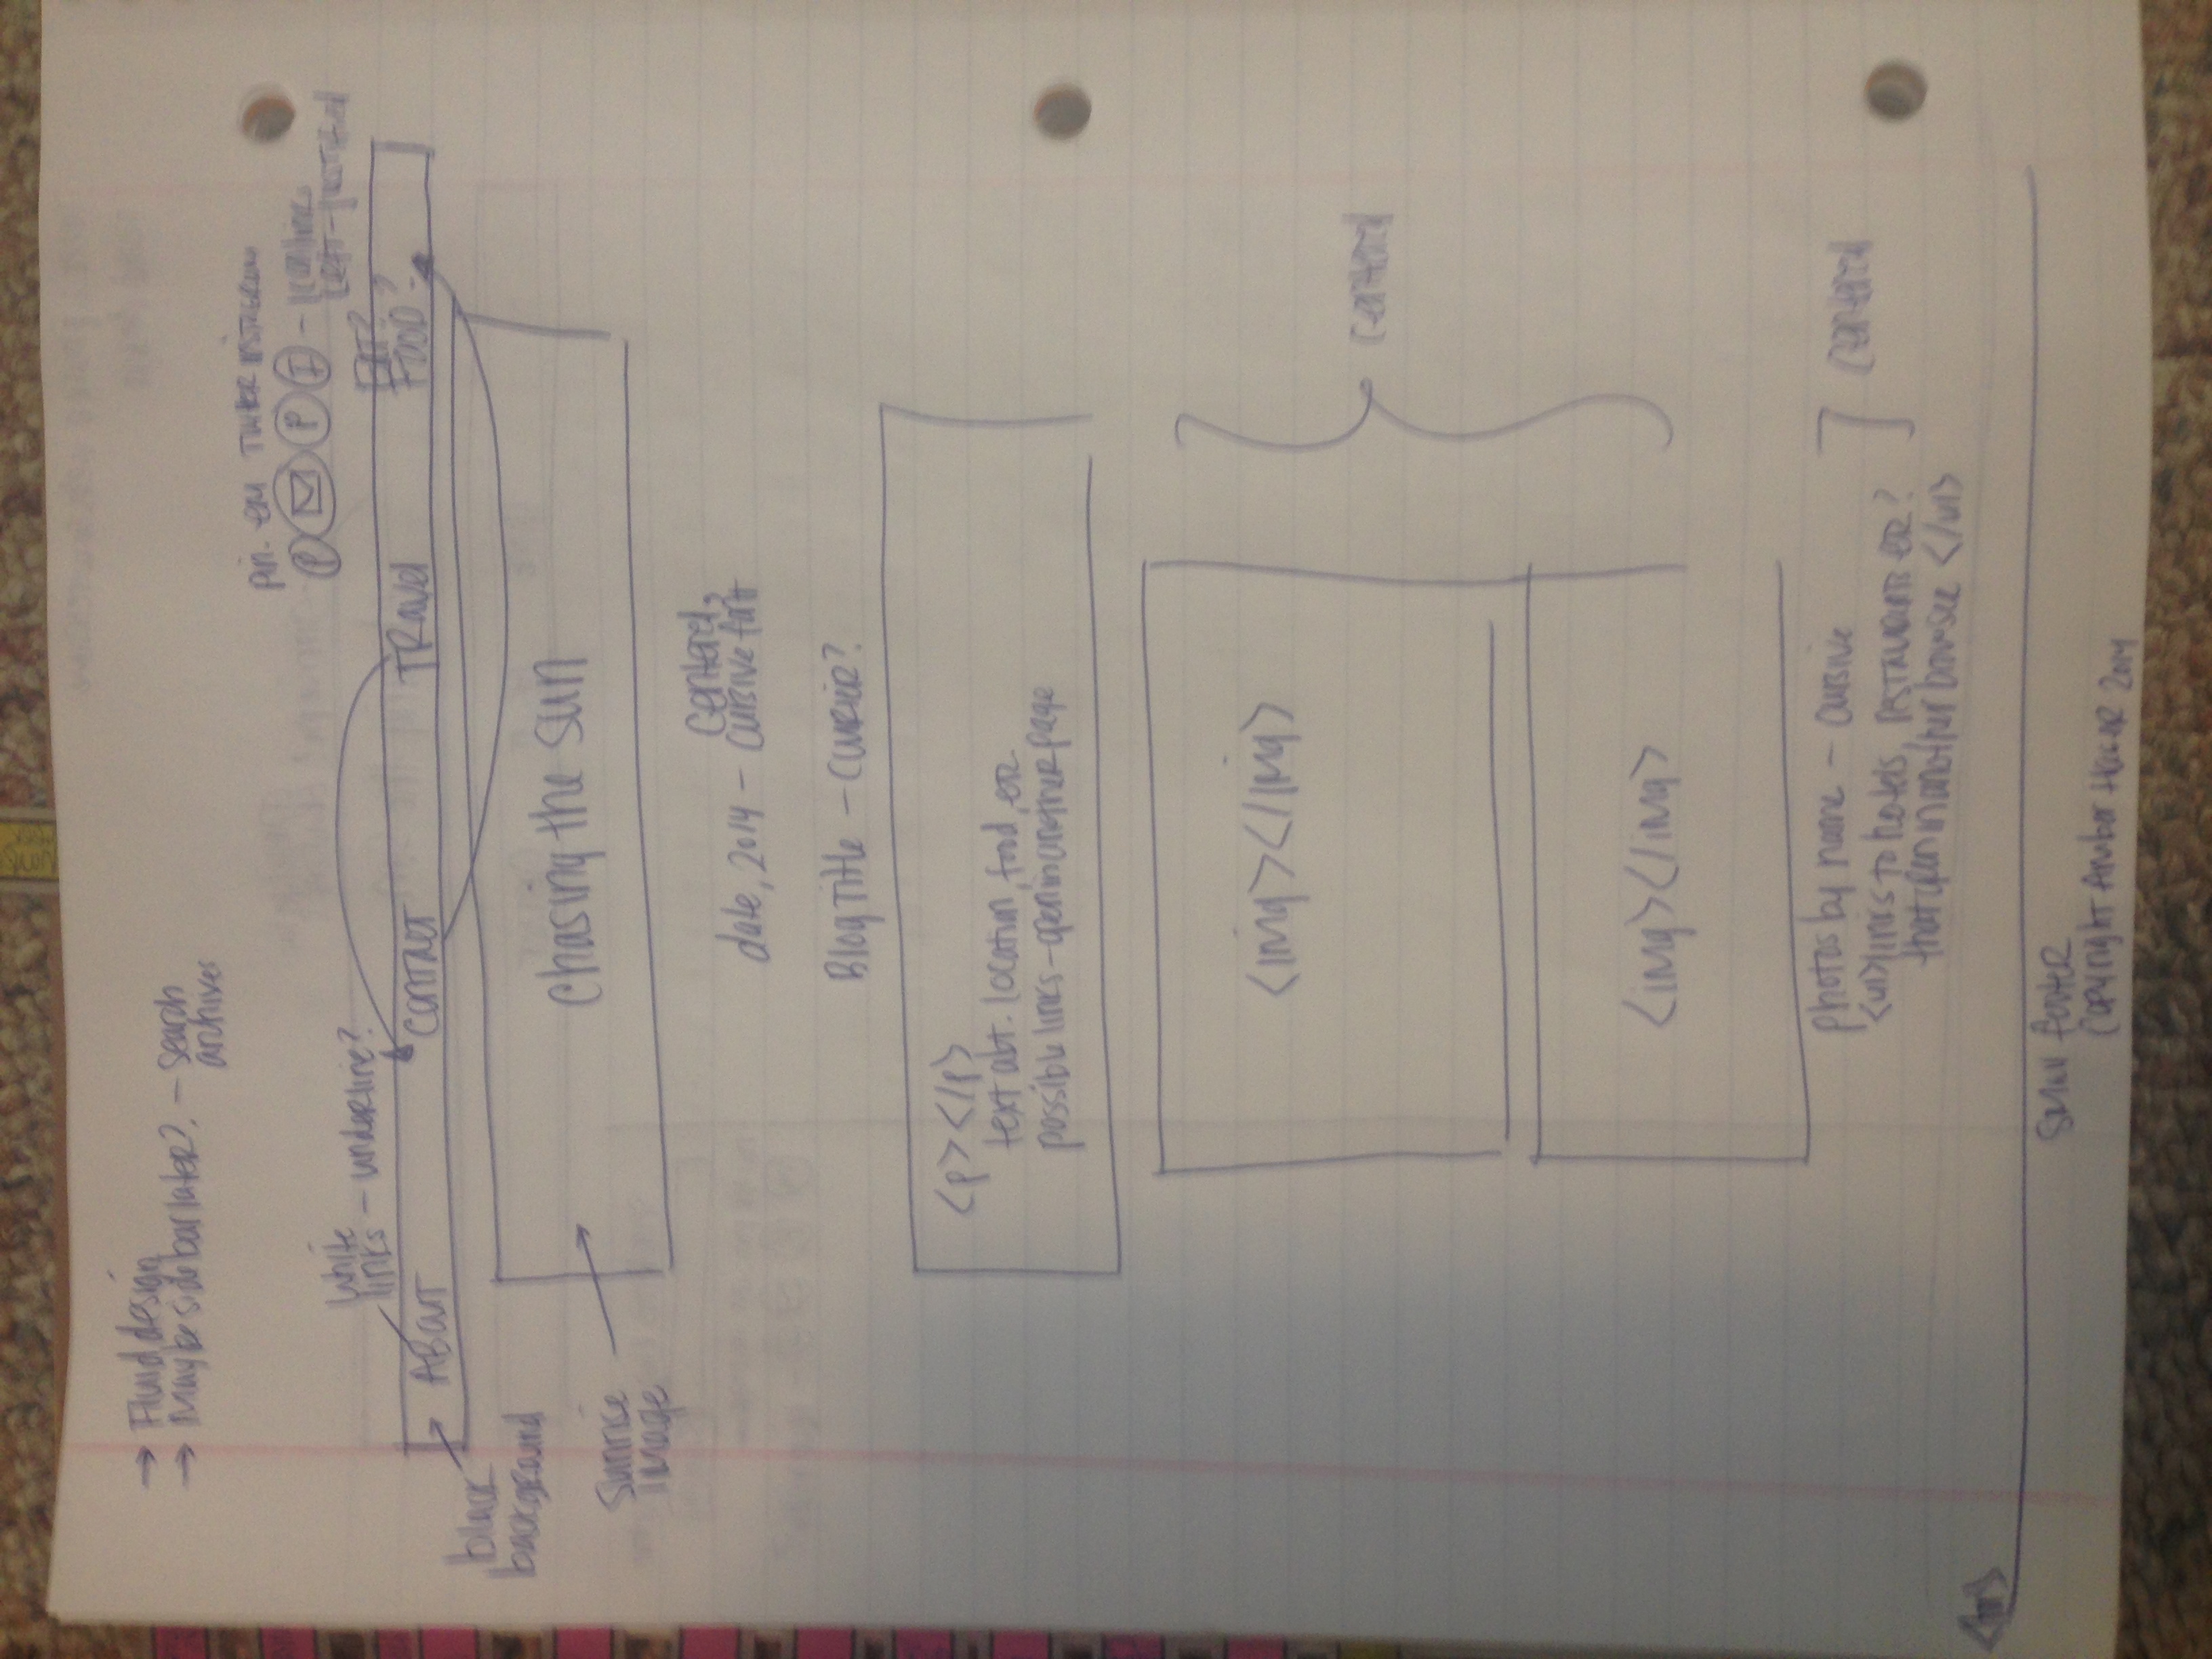 → Fluid design
→ Maybe sidebar later? – search
archives
pin. em Twitter Instagram
P P I – icon links
Left-justified
White
links – underline?
EAT?
ABOUT CONTACT TRAVEL FOOD?
black
background
Chasing the sun
Sunrise
image
Centered,
date, 2014 – cursive font
Blog Title – Courier?
<p></p>
text abt. location, food, etc.
possible links – open in another page
<img></img>
centered
<img></img>
photos by name – cursive
centered
<ul>links to hotels, restaurants etc?
that open in another browser </ul>
<hr>
Small footer
Copyright Amber 2014